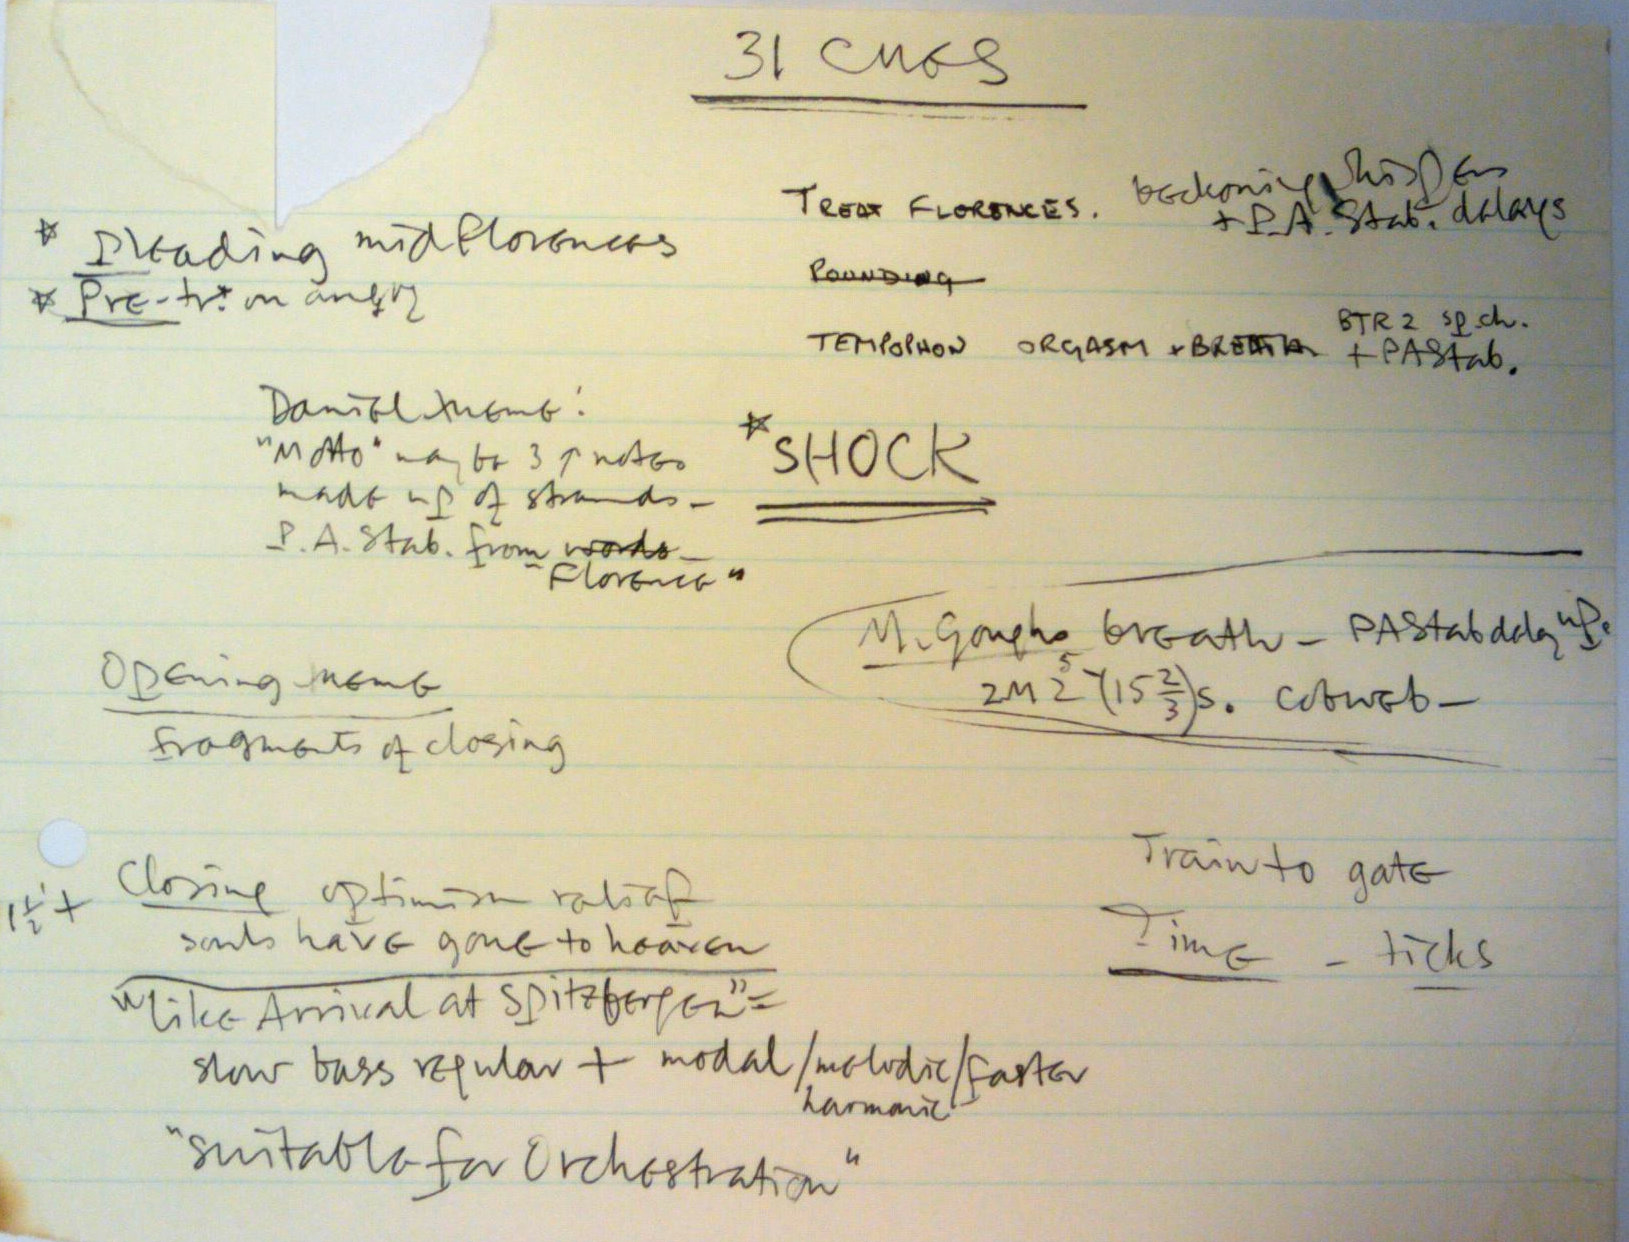 31 CUES
TREAT FLORENCES. beckoning whispers
+ P.A. Stab. delays
* Pleading mid Florences
POUNDING
* Pre- on angry
BTR 2 sp.ch.
TEMPOPHON ORGASM + BREATH + PAStab.
Daniel theme:
"Motto" maybe 3 ↑ notes
made up of strands -
P.A. Stab. from words -
"Florence"
* SHOCK
M. Goughs breath - PAStab delay up.
2M 2 5 (15 2/3)s. Cobweb -
Opening theme
fragments of closing
Train to gate
Time - ticks
1 1/2' + Closing optimism relief
souls have gone to heaven
"like Arrival at Spitzbergen" =
slow bass regular + modal/melodic/faster
harmonic
"suitable for Orchestration"